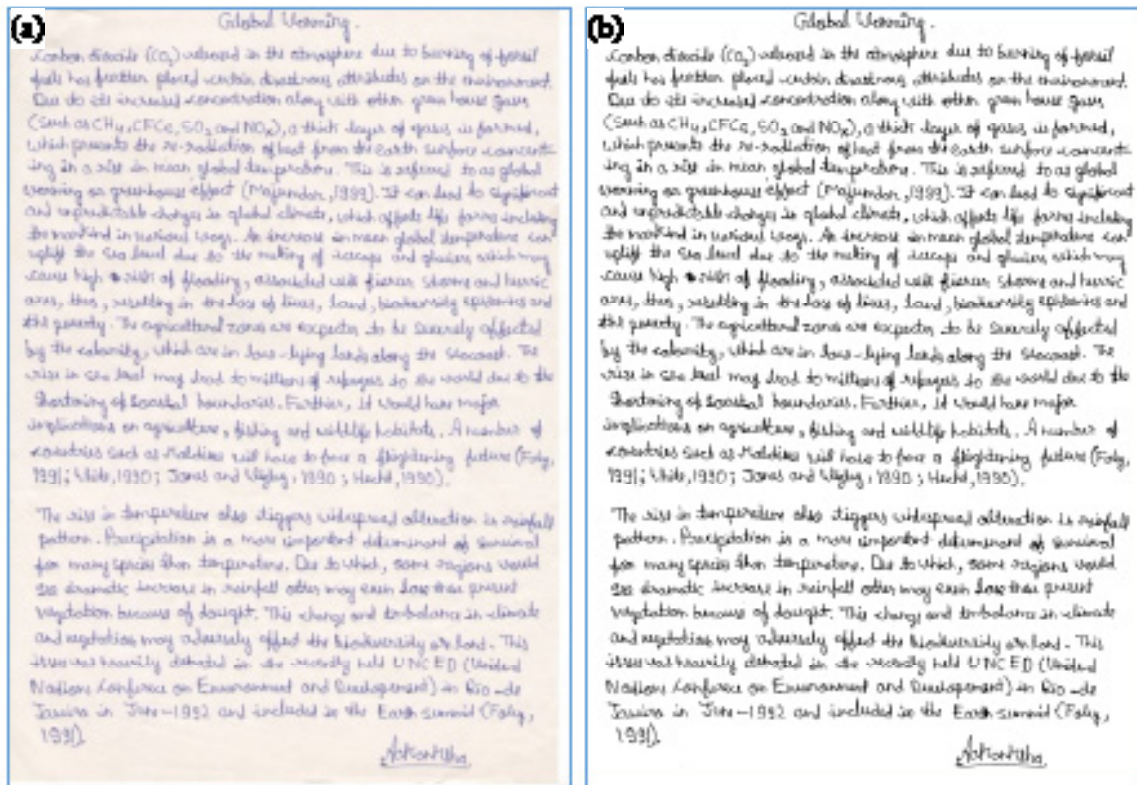 (a)
Global Warming.
Carbon dioxide (CO2) released in the atmosphere due to burning of fossil
fuels has further placed certain disastrous attributes on the environment.
Due do its increased concentration along with other green house gases
(Such as CH4, CFCs, SO2 and NOx), a thick layer of gases is formed,
which prevents the re-radiation of heat from the earth surface
ing in a rise in mean global temperature. This is referred to as global
warming or greenhouse effect (Majumdar, 1999). It can lead to significant
and unpredictable changes in global climate, which affects life forms including
the mankind in various ways. An increase in mean global temperature can
uplift the sea level due to the melting of icecaps and glaciers which may
cause high risk of flooding, associated with fiercer storms and hurric
anes, thus, resulting in the loss of lives, land, biodiversity epidemics and
the poverty. The agricultural zones are expected to be severely affected
by the calamity, which are in low-lying lands along the seacoast. The
rise in sea level may lead to millions of refugees to the world due to the
Shortning of Coastal boundaries. Further, it would have major
implications on agriculture, fishing and wildlife habitats. A number of
countries such as Maldives will have to face a frightening future (Foley,
1991; White, 1990; Jones and Wigley, 1990; Hecht, 1990).
The rise in temperature also triggers widespread alteration in rainfall
pattern. Precipitation is a more important determinant of survival
for many species than temperature. Due to which, some regions would
see dramatic increase in rainfall other may even lose their present
vegetation because of dought. This change and imbalance in climate
and vegetation may adversely affect the biodiversity on land. This
issue was heavily debated in the recently held UNCED (United
Nations Conferece on Environment and Development) in Rio-de
Janeiro in June-1992 and included in the Earth summit (Foley,
1991).
(b)
Global Warming.
Carbon dioxide (CO2) released in the atmosphere due to burning of fossil
fuels has further placed certain disastrous attributes on the environment.
Due do its increased concentration along with other green house gases
(Such as CH4, CFCs, SO2 and NOx), a thick layer of gases is formed,
which prevents the re-radiation of heat from the earth surface
ing in a rise in mean global temperature. This is referred to as global
warming or greenhouse effect (Majumdar, 1999). It can lead to significant
and unpredictable changes in global climate, which affects life forms including
the mankind in various ways. An increase in mean global temperature can
uplift the sea level due to the melting of icecaps and glaciers which may
cause high risk of flooding, associated with fiercer storms and hurric
anes, thus, resulting in the loss of lives, land, biodiversity epidemics and
the poverty. The agricultural zones are expected to be severely affected
by the calamity, which are in low-lying lands along the seacoast. The
rise in sea level may lead to millions of refugees to the world due to the
Shortning of Coastal boundaries. Further, it would have major
implications on agriculture, fishing and wildlife habitats. A number of
countries such as Maldives will have to face a frightening future (Foley,
1991; White, 1990; Jones and Wigley, 1990; Hecht, 1990).
The rise in temperature also triggers widespread alteration in rainfall
pattern. Precipitation is a more important determinant of survival
for many species than temperature. Due to which, some regions would
see dramatic increase in rainfall other may even lose their present
vegetation because of dought. This change and imbalance in climate
and vegetation may adversely affect the biodiversity on land. This
issue was heavily debated in the recently held UNCED (United
Nations Conferece on Environment and Development) in Rio-de
Janeiro in June-1992 and included in the Earth summit (Foley,
1991).